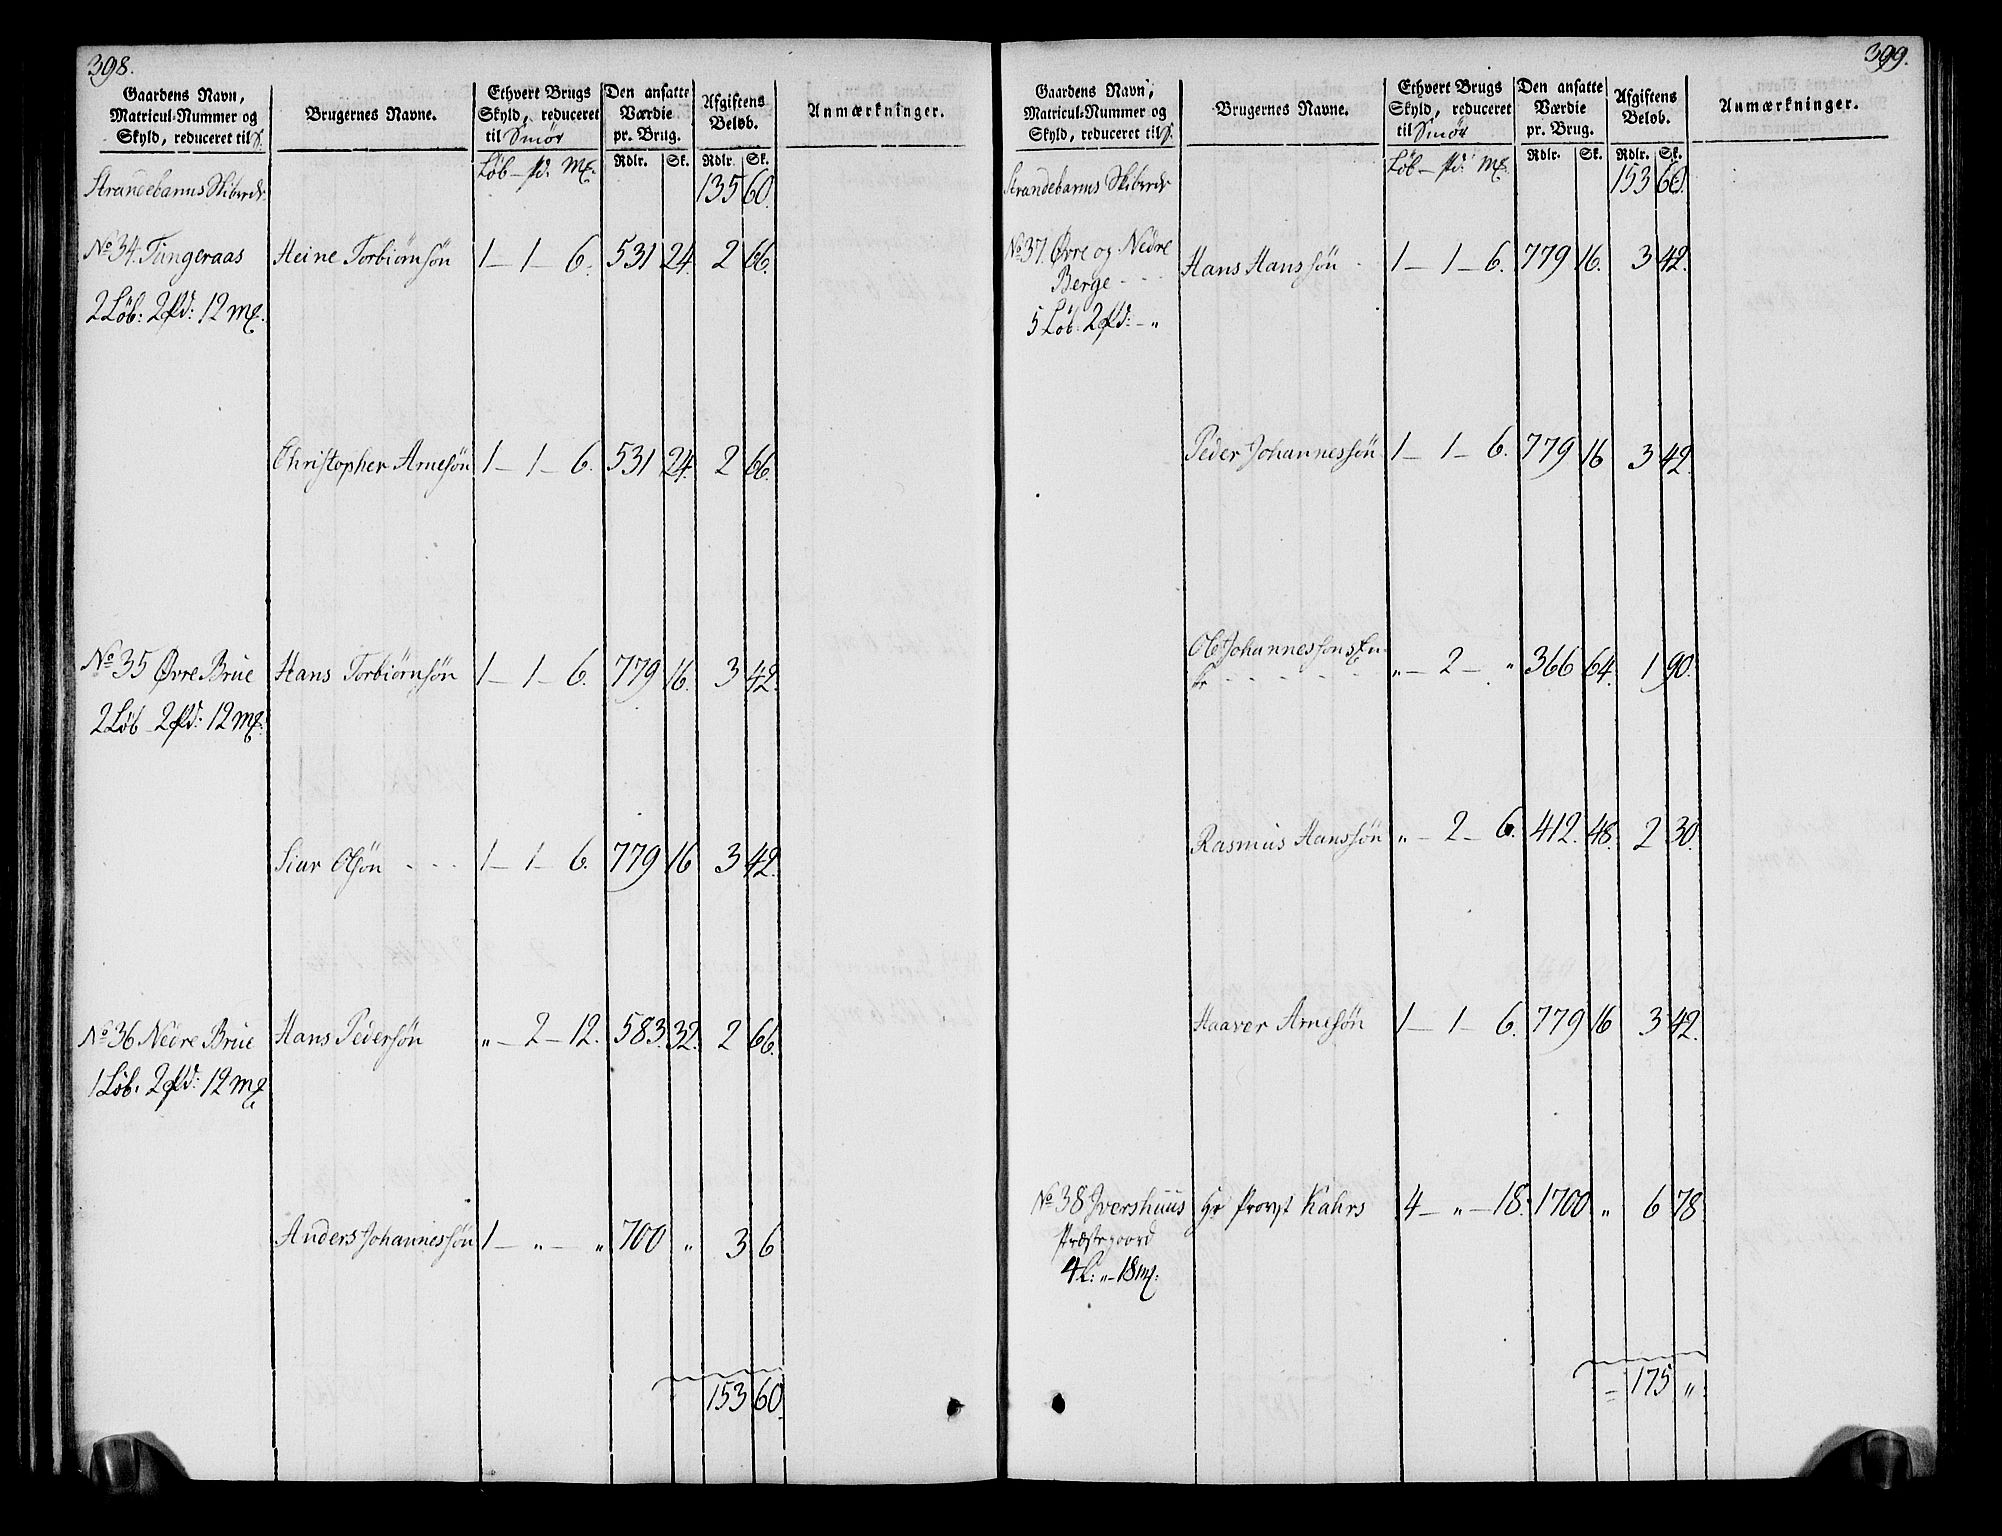 398.
Gaardens Navn, Matricul-Nummer og Skyld, reduceret til
Brugernes Navne.
Ethvert Brugs Skyld, reduceret til Smör
Den ansatte Værdie pr. Brug.
Afgiftens Beløb.
Anmærkninger.
Løb — pd: mk.
Rdlr. Sk. Rdlr. Sk.
Strandebarms Skibrede 135 60.
No 34. Tangeraas Heine Torbiörnsön 1 — 1 — 6. 531 24. 2 66.
2 Løb: 2 pd: 12 mk.
Christopher Arnesön 1 — 1 — 6. 531 24. 2 66.
No 35 Øvre Brue Hans Torbiörnsön 1 — 1 — 6. 779 16. 3 42.
2 Løb — 2 pd: 12 mk.
Siur Olsön - - - 1 — 1 — 6. 779 16 3 42.
No 36 Nedre Brue Hans Pedersön „ — 2 — 12. 583. 32. 2 66.
1 Løb. 2 pd: 12 mk
Anders Johannessön 1 — „ — „ 700 „ 3 6
153 60.
399.
Gaardens Navn, Matricul-Nummer og Skyld, reduceret til
Brugernes Navne.
Ethvert Brugs Skyld, reduceret til Smör
Den ansatte Værdie pr. Brug.
Afgiftens Beløb.
Anmærkninger.
Løb — pd: mk.
Rdlr. Sk. Rdlr. Sk.
Strandebarms Skibrede 153 60.
No 37. Øvre og Nedre Hans Hanssön 1 — 1 — 6. 779 16. 3 42.
Berge - - -
5 Løb. 2 pd: — „
Peder Johannessön 1 — 1 — 6. 779 16 3 42.
Ole Johannessöns En-
ke - - - - - - „ — 2 — „ 366 64. 1 90.
Rasmus Hanssön „ — 2 — 6. 412. 48. 2 30.
Haaver Arnesön 1 — 1 — 6. 779 16 3 42.
No 38 Ivershuus Hr Provst Kahrs 4 — „ — 18. 1700 „ 6 78
Præstegaard
4 L: „ — 18 mk.
= 175 „